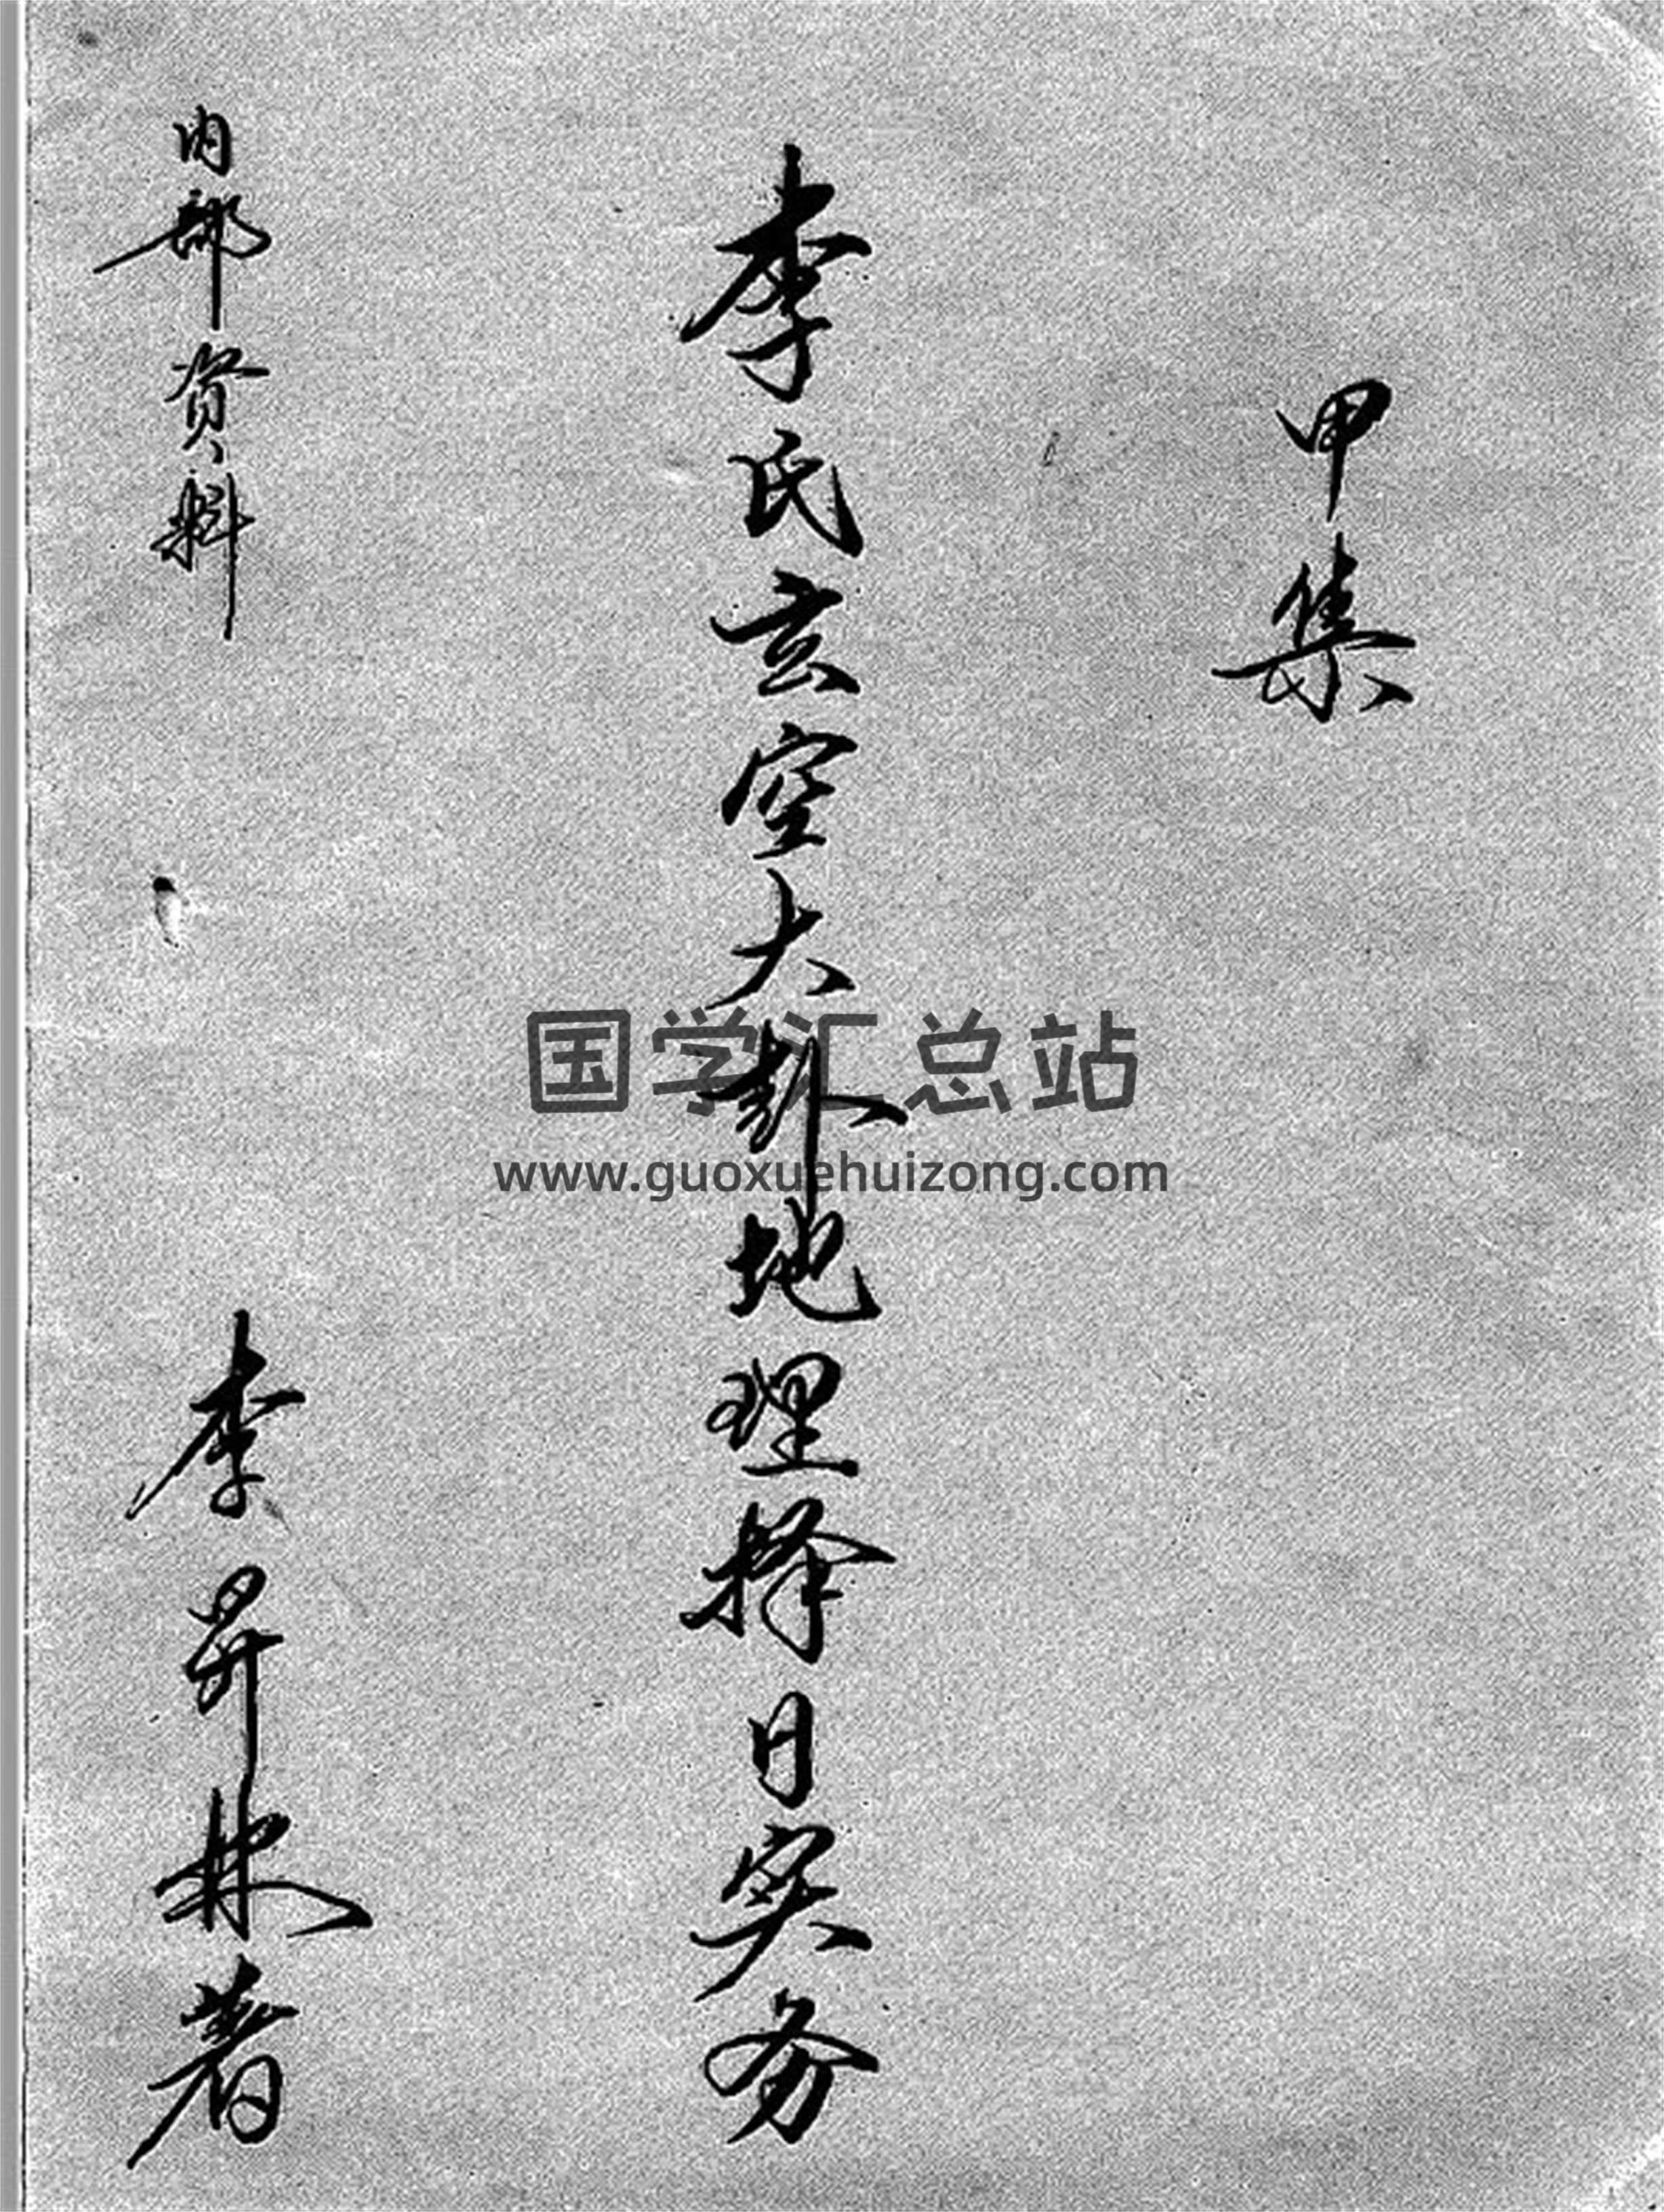 甲集
李氏玄空大卦地理择日实务
内部资料
李昇林著
国学汇总站
www.guoxuehuizong.com